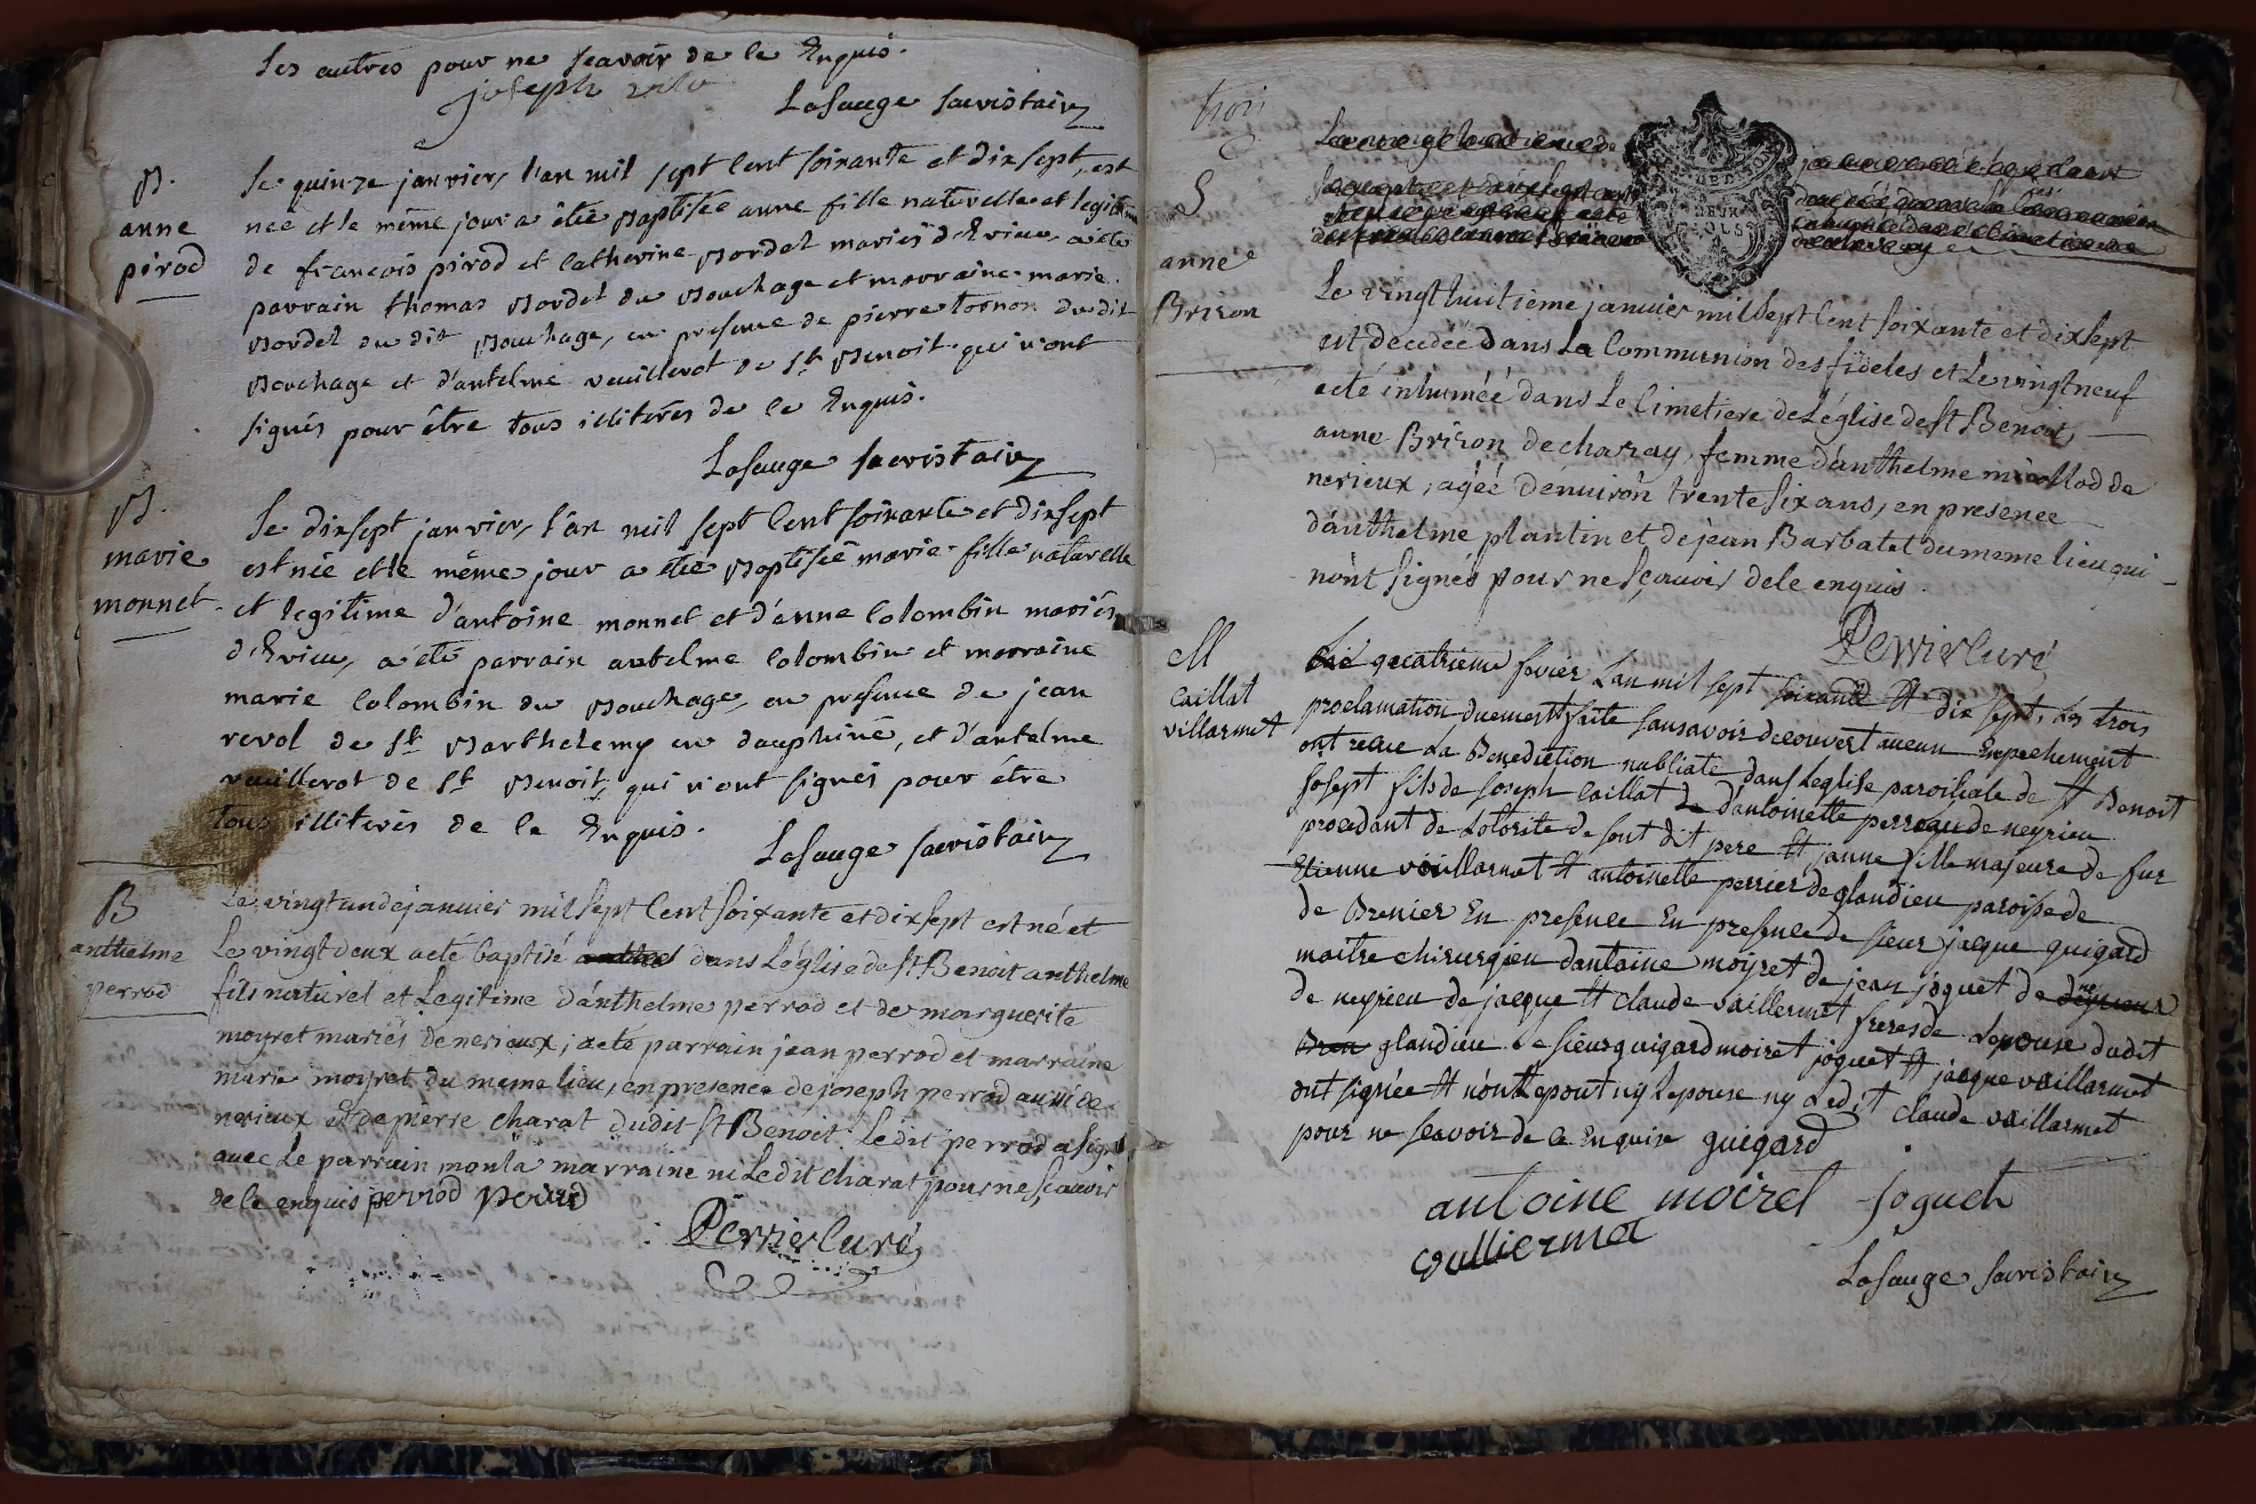 Les autres pour ne scavoir de ce Enquis.
joseph
Lasauge sacristain
B.
anne
pirod
Le quinze janvier, l'an mil sept cent soixante et dix sept, est
née et le même jour a été Baptisée anne fille naturelle et legitime
de francois pirod et Catherine Bordel mariés d'Evieu, a été
parrain thomas Bordel du Bouchage et marraine marie
Bordel du dit Bouchage, en presence de pierre tornon du dit
Bouchage et d'antelme veuillerot de St Benoit qui n'ont
signés pour être tous illiterés de ce Enquis.
Lasauge sacristain
B.
marie
monnet
Le dix sept janvier, l'an mil sept Cent soixante et dix sept
est née et le même jour a été Baptisée marie fille naturelle
et legitime d'antoine monnet et d'anne Colombin mariés
d'Evieu, a été parrain antelme Colombin et marraine
marie Colombin du Bouchage, en presence de jean
revol de St Barthelemy en dauphiné, et d'antelme
veuillerot de St Benoit, qui n'ont signés pour être
tous illiterés de ce Enquis.
Lasauge sacristain
B
anthelme
perrod
Le vingt un de janvier mil sept Cent soixante et dix sept est né et
Le vingt deux a eté baptisé dans L'église de St Benoit anthelme
fils naturel et Legitime d'anthelme perrod et de marguerite
moyret mariés de nerieux, a eté parrain jean perrod et marraine
marie moyret du meme lieu, en presence de joseph perrod aussi de
nerieux et de pierre charat dudit St Benoit. Ledit perrod a signé
avec Le parrain non la marraine ni Ledit charat pour ne sçavoir
de ce enquis perrod perrod
Perrier Curé
trois
S
anne
Brison
Le vingt huitieme janvier mil sept Cent soixante et dix sept
est decedéé dans La Communion des fideles et Le vingt neuf
a eté inhuméé dans Le Cimetiere de L'église de St Benoit,
anne Brison de charay, femme d'anthelme miollod de
nerieux, agéé d'environ trente six ans, en presence
d'anthelme plantin et de jean Barbatet du meme lieu qui
n'ont signés pour ne sçavoir de ce enquis.
Perrier Curé
M
Caillat
villarmet
quatrieme fevrier Lan mil sept soixante et dix sept, les trois
proclamation duement faite sans avoir decouvert aucun Empechement
ont recue La Benediction nubliate dans Leglise paroisiale de St Benoit
Josept fils de Joseph Caillat de d'antoinette perreau de neyrieu
procedant de Lotorite de sont dit pere et janne fille majeure de fur
Etienne voillarmet et antoinette perrier de glandieu paroise de
de Brenier En presence En presence de sieur jacque guigard
maitre chirurgien dantoine moyret de jean joguet de
de neyrieu de jacque et claude vaillermet freres de Lepouse dudit
glandieu Le sieur guigard moiret joguet et jacque voillarmet
ont signée et n'ont Lepout ny Lepouse ny Ledit claude voillarmet
pour ne scavoir de ce Enquise guigard
antoine moiret joguet
Lasauge sacristain